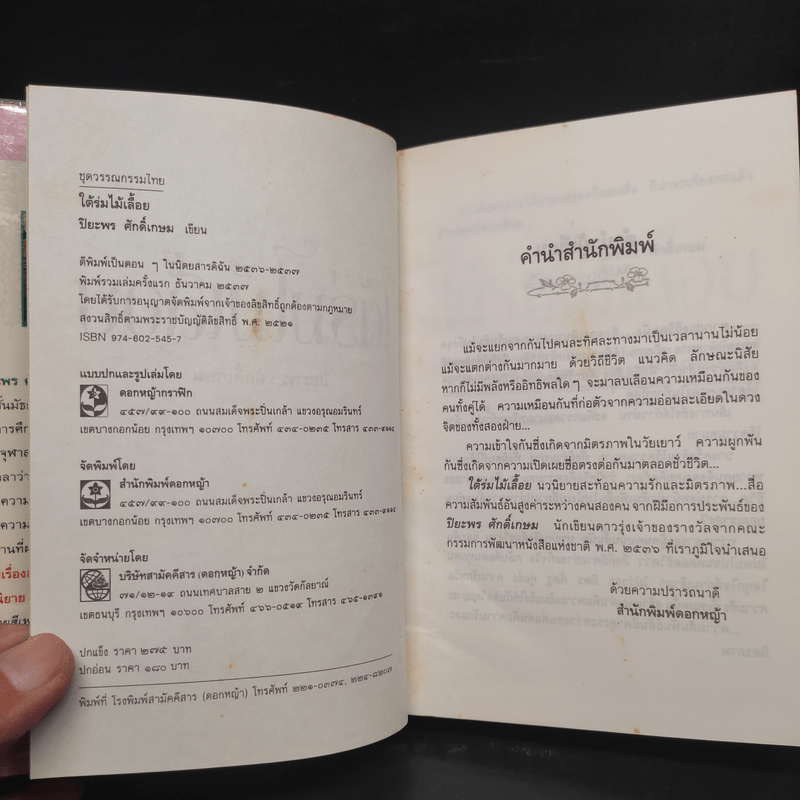 ชุดวรรณกรรมไทย
ใต้ร่มไม้เลื้อย
ปิยะพร ศักดิ์เกษม เขียน
ตีพิมพ์เป็นตอน ๆ ในนิตยสารดิฉัน ๒๕๓๖-๒๕๓๗
พิมพ์รวมเล่มครั้งแรก ธันวาคม ๒๕๓๗
โดยได้รับการอนุญาตจัดพิมพ์จากเจ้าของลิขสิทธิ์ถูกต้องตามกฎหมาย
สงวนสิทธิ์ตามพระราชบัญญัติลิขสิทธิ์ พ.ศ. ๒๕๒๑
ISBN 974-602-545-7
แบบปกและรูปเล่มโดย
ดอกหญ้ากราฟิก
๔๕๗/๙๙-๑๐๐ ถนนสมเด็จพระปิ่นเกล้า แขวงอรุณอมรินทร์
เขตบางกอกน้อย กรุงเทพฯ ๑๐๗๐๐ โทรศัพท์ ๔๓๔-๐๒๓๕ โทรสาร
จัดพิมพ์โดย
สำนักพิมพ์ดอกหญ้า
๔๕๗/๙๙-๑๐๐ ถนนสมเด็จพระปิ่นเกล้า แขวงอรุณอมรินทร์
เขตบางกอกน้อย กรุงเทพฯ ๑๐๗๐๐ โทรศัพท์ ๔๓๔-๐๒๓๕ โทรสาร
จัดจำหน่ายโดย
บริษัทสามัคคีสาร (ดอกหญ้า) จำกัด
๗๑/๑๒-๑๙ ถนนเทศบาลสาย ๒ แขวงวัดกัลยาณ์
เขตธนบุรี กรุงเทพฯ ๑๐๖๐๐ โทรศัพท์ ๔๖๖-๐๕๑๙ โทรสาร ๔๖๕-๑๓๙๑
ปกแข็ง ราคา ๒๗๕ บาท
ปกอ่อน ราคา ๑๘๐ บาท
พิมพ์ที่ โรงพิมพ์สามัคคีสาร (ดอกหญ้า) โทรศัพท์ ๒๒๑-๐๓๗๔, ๒๒๔-๘๒๐๗
คำนำสำนักพิมพ์
แม้จะแยกจากกันไปคนละทิศละทางมาเป็นเวลานานไม่น้อย
แม้จะแตกต่างกันมากมาย ด้วยวิถีชีวิต แนวคิด ลักษณะนิสัย
หากก็ไม่มีพลังหรืออิทธิพลใดๆ จะมาลบเลือนความเหมือนกันของ
คนทั้งคู่ได้ ความเหมือนกันที่ก่อตัวจากความอ่อนละเอียดในดวง
จิตของทั้งสองฝ่าย...
ความเข้าใจกันซึ่งเกิดจากมิตรภาพในวัยเยาว์ ความผูกพัน
กันซึ่งเกิดจากความเปิดเผยซื่อตรงต่อกันมาตลอดชั่วชีวิต...
ใต้ร่มไม้เลื้อย นวนิยายสะท้อนความรักและมิตรภาพ...สื่อ
ความสัมพันธ์อันสูงค่าระหว่างคนสองคน จากฝีมือการประพันธ์ของ
ปิยะพร ศักดิ์เกษม นักเขียนดาวรุ่งเจ้าของรางวัลจากคณะ
กรรมการพัฒนาหนังสือแห่งชาติ พ.ศ. ๒๕๓๖ ที่เราภูมิใจนำเสนอ
ด้วยความปรารถนาดี
สำนักพิมพ์ดอกหญ้า